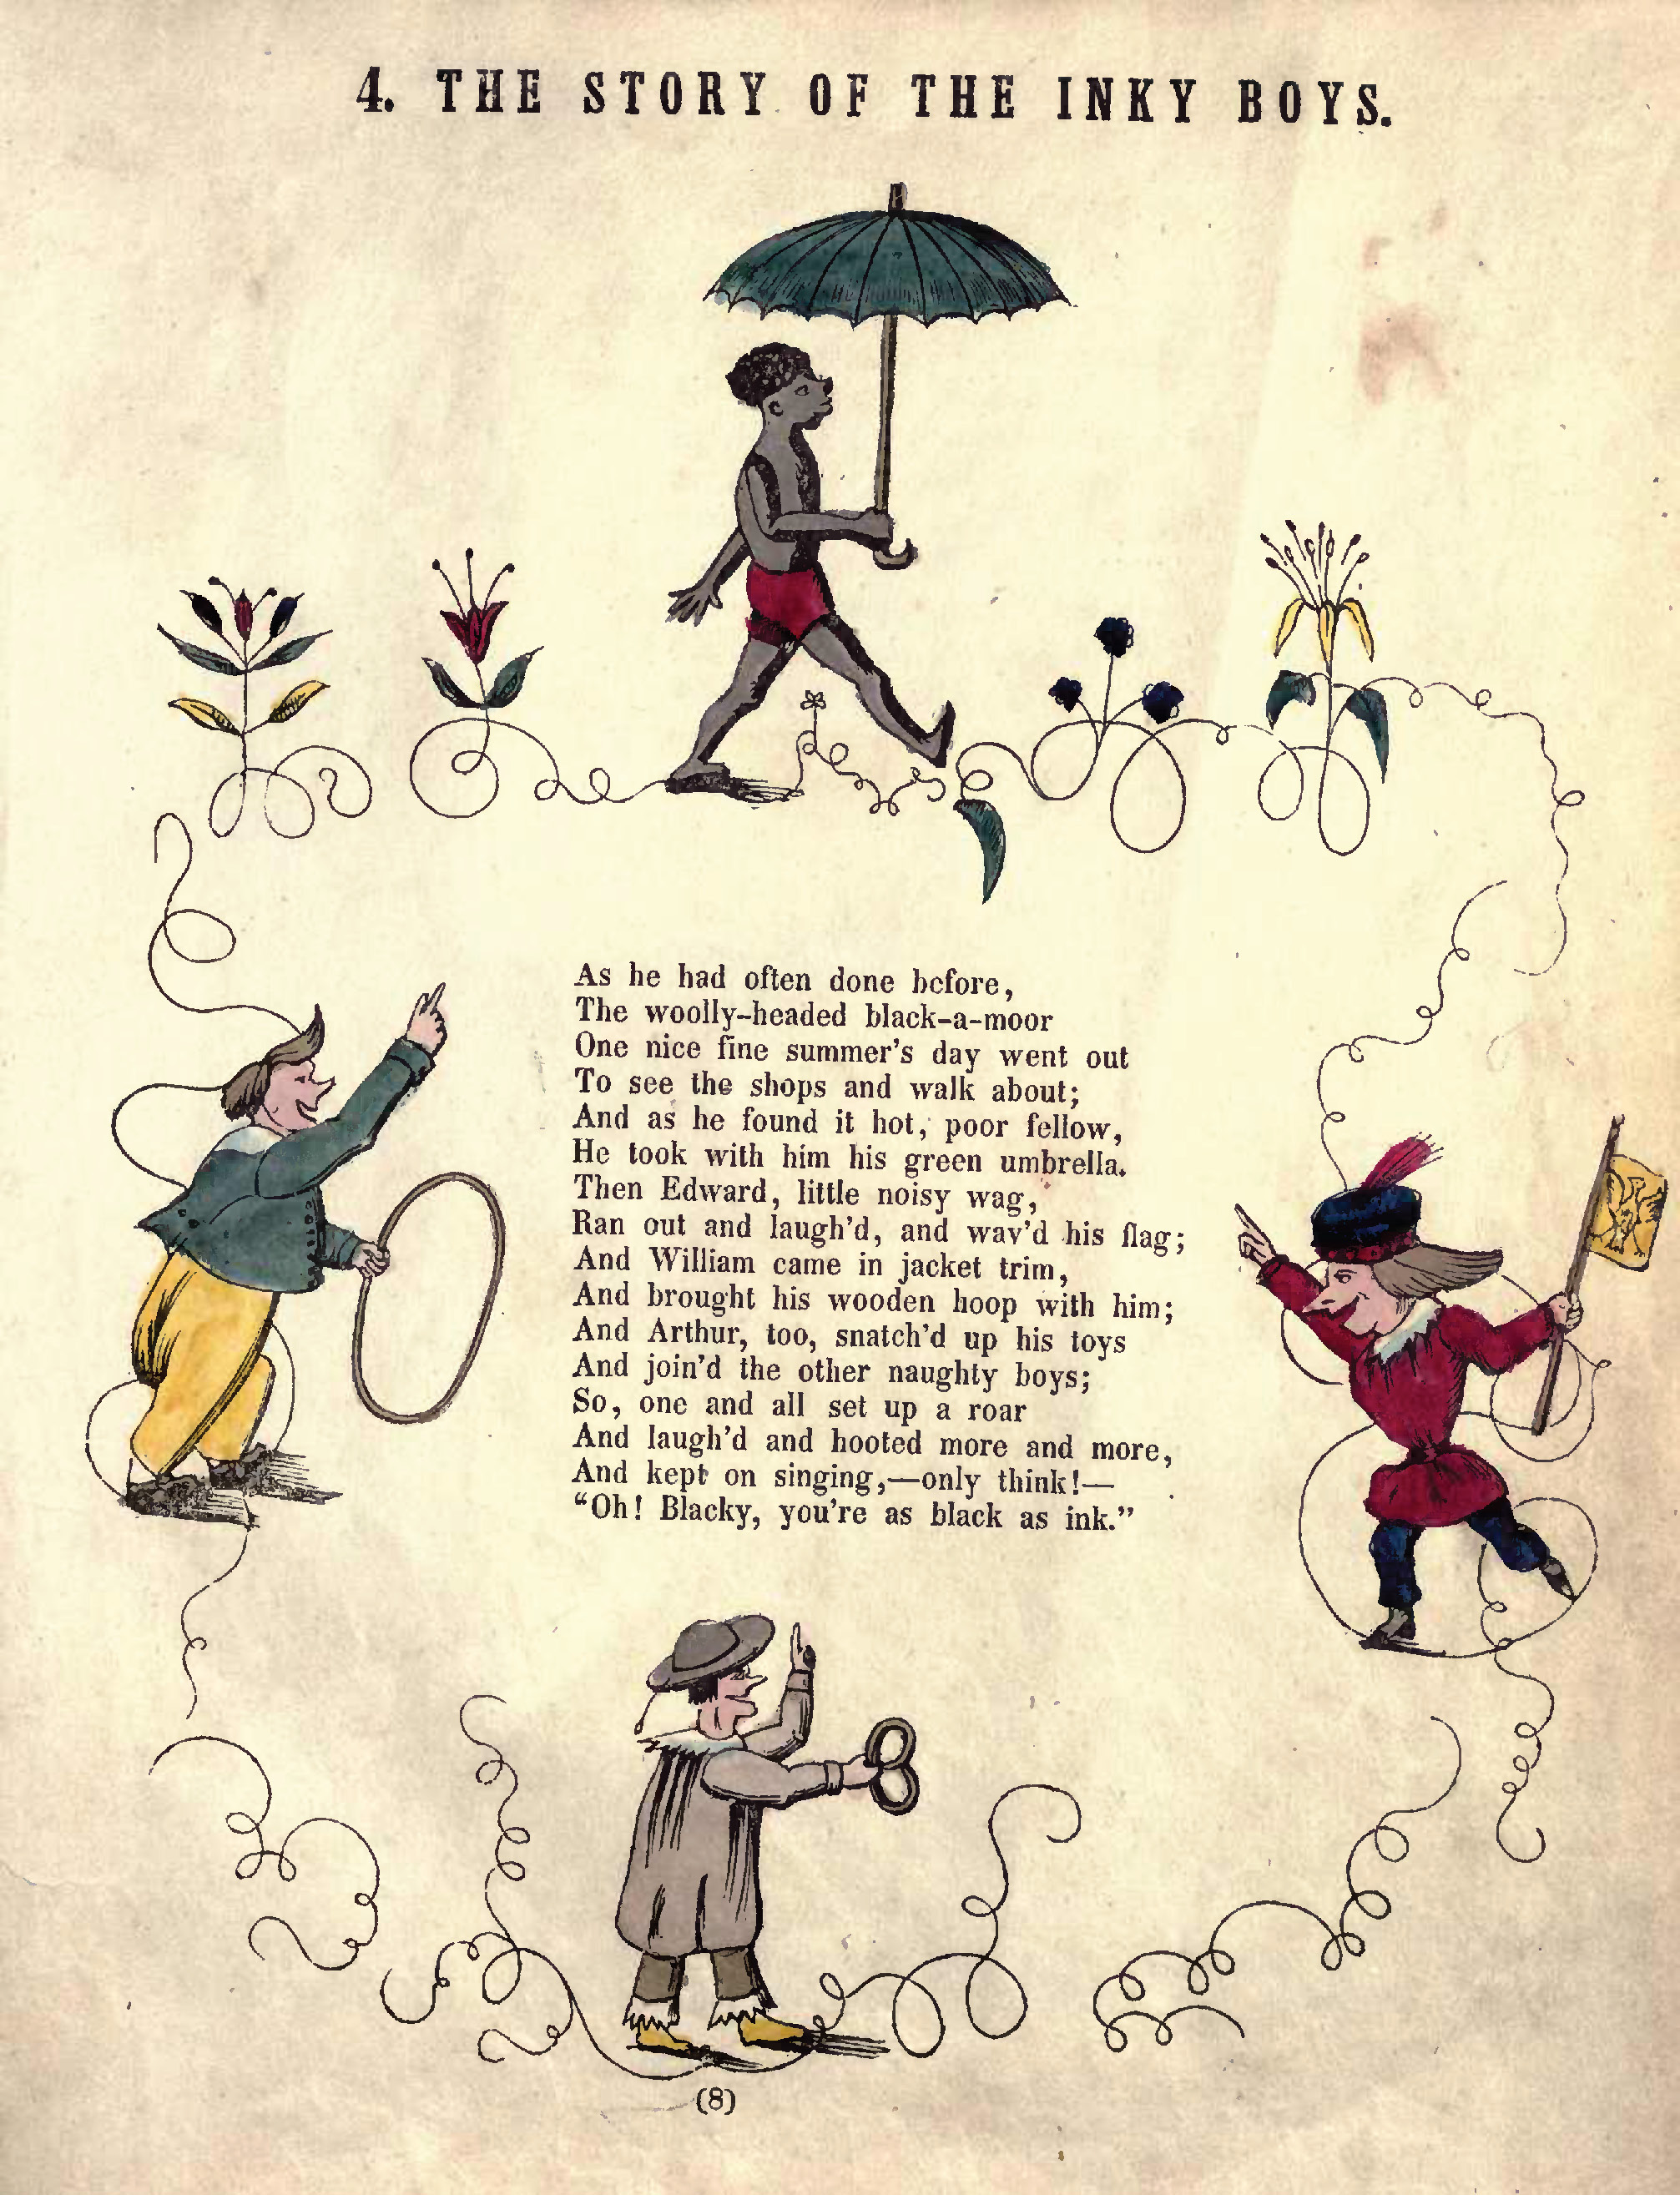 4. THE STORY OF THE INKY BOYS.
As he had often done before,
The woolly-headed black-a-moor
One nice fine summer's day went out
To see the shops and walk about;
And as he found it hot, poor fellow,
He took with him his green umbrella.
Then Edward, little noisy wag,
Ran out and laugh'd, and wav'd his flag;
And William came in jacket trim,
And brought his wooden hoop with him;
And Arthur, too, snatch'd up his toys
And join'd the other naughty boys;
So, one and all set up a roar
And laugh'd and hooted more and more,
And kept on singing,—only think!—
“Oh! Blacky, you're as black as ink.”
(8)